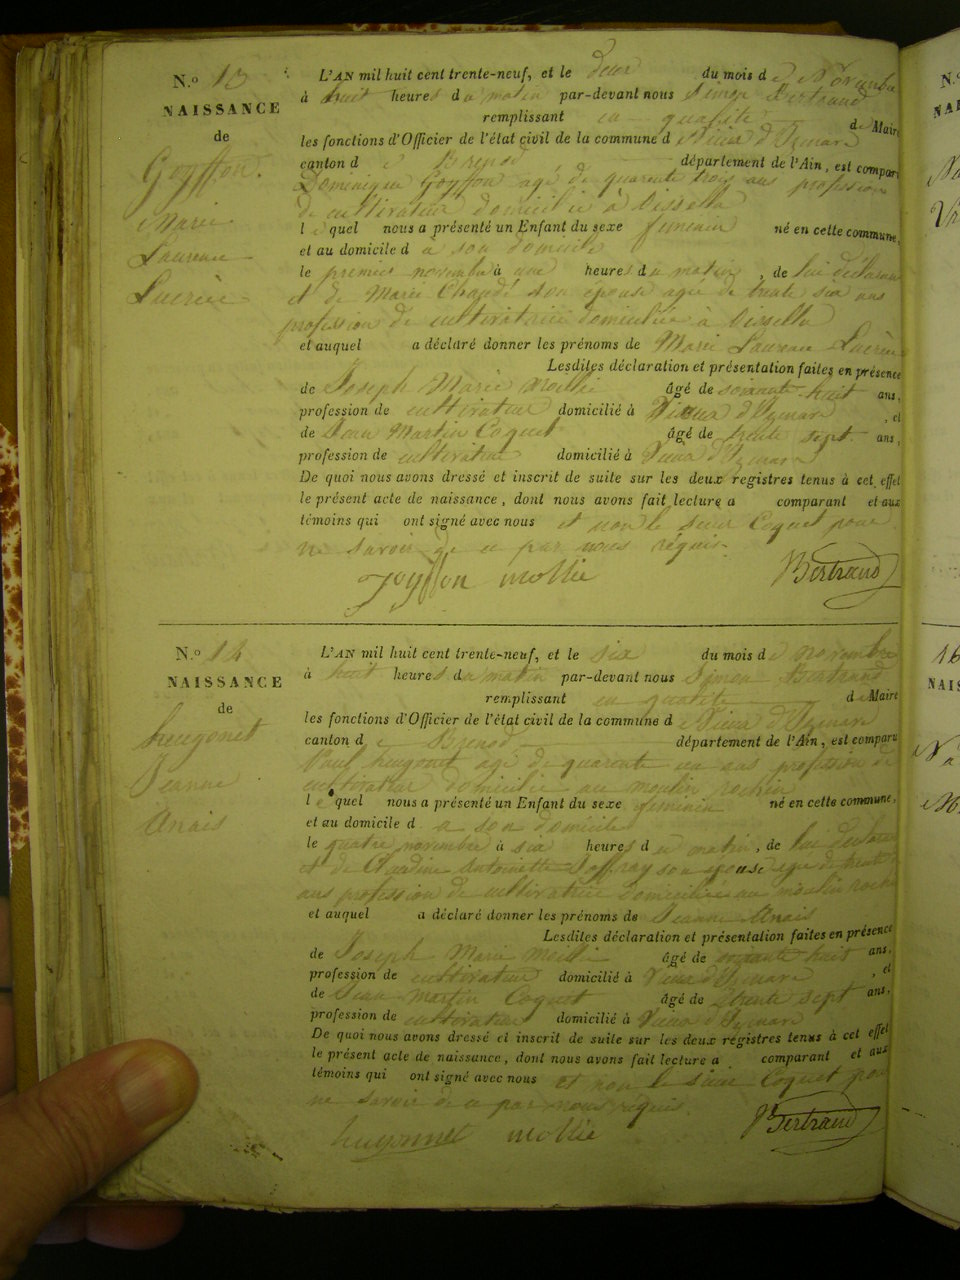 N.o 13
NAISSANCE
de
Goyffon.
Marie
Laurence
Lucrèce
L'AN mil huit cent trente-neuf, et le deux du mois de Novembre
à huit heures du matin par-devant nous Simon Bertrand
remplissant en qualité de Maire
les fonctions d'Officier de l'état civil de la commune de Vieux d'Izenave
canton de Brenod département de l'Ain, est comparu
Dominique Goyffon agé de quarente trois ans profession
de cultivateur domicilié à
lequel nous a présenté un Enfant du sexe feminin né en cette commune,
et au domicile d à son domicile
le premier novembre à une heures du matin, de lui déclarant
et de Marie son épouse agée de trente six ans
profession de cultivatrice domiciliée à
et auquel a déclaré donner les prénoms de Marie Laurence Lucrèce
Lesdites déclaration et présentation faites en présence
de Joseph Marie Mollie âgé de soixante huit ans,
profession de cultivateur domicilié à Vieux d'Izenave, et
de Jean Martin Coquet âgé de trente sept ans,
profession de cultivateur domicilié à Vieux d'Izenave
De quoi nous avons dressé et inscrit de suite sur les deux registres tenus à cet effet
le présent acte de naissance, dont nous avons fait lecture a comparant et aux
témoins qui ont signé avec nous et non le sieur Coquet pour
ne savoir de ce par nous réquis.
Goyffon Mollie Bertrand
N.o 14
NAISSANCE
de
hugonet
Jeanne
Anais
L'AN mil huit cent trente-neuf, et le six du mois de novembre
à huit heures du matin par-devant nous Simon Bertrand
remplissant en qualité de Maire
les fonctions d'Officier de l'état civil de la commune de Vieux d'Izenave
canton de Brenod département de l'Ain, est comparu
Paul hugonet agé de quarente un ans profession de
cultivateur domicilié au moulin rochin
lequel nous a présenté un Enfant du sexe feminin né en cette commune,
et au domicile d a son domicile
le quatre novembre à six heures du matin, de lui declarant
et de Claudine Antoinette Joffray son epouse agee de trente
ans profession de cultivatrice domiciliée au moulin rochin
et auquel a déclaré donner les prénoms de Jeanne Anais
Lesdites déclaration et présentation faites en présence
de Joseph Marie Mollie âgé de soixante huit ans,
profession de cultivateur domicilié à Vieux d'Izenave, et
de Jean Martin Coquet âgé de trente sept ans,
profession de cultivateur domicilié à Vieux d'Izenave
De quoi nous avons dressé et inscrit de suite sur les deux registres tenus à cet effet
le présent acte de naissance, dont nous avons fait lecture a comparant et aux
témoins qui ont signé avec nous et non le sieur Coquet pour
ne savoir de ce par nous réquis.
hugonnet Mollie Bertrand